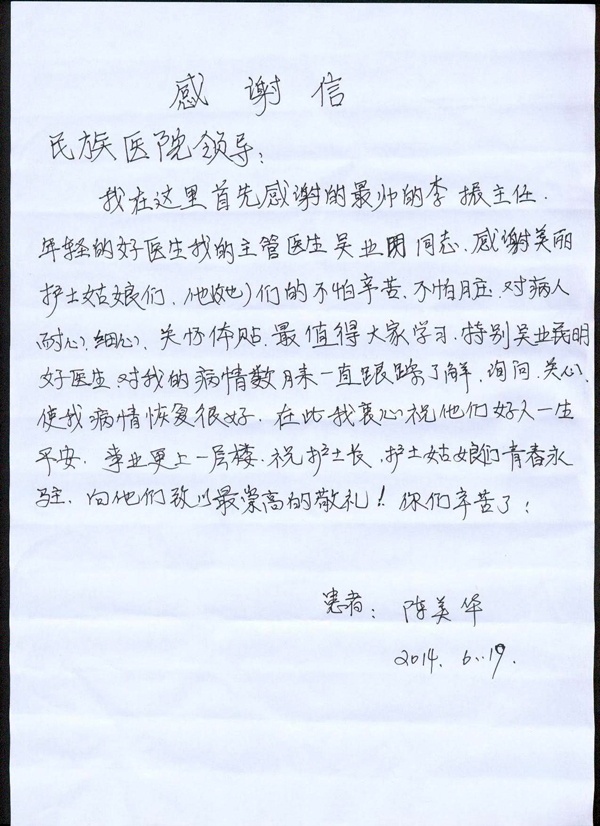 感谢信
民族医院领导:
我在这里首先感谢的最帅的李振主任.
年轻的好医生我的主管医生吴业明同志.感谢美丽
护士姑娘们.他(她)们的不怕辛苦.不怕脏.对病人
耐心.细心.关怀体贴.最值得大家学习.特别吴业民明
好医生.对我的病情数月来一直跟踪了解.询问.关心.
使我病情恢复很好.在此我衷心祝他们好人一生
平安.事业更上一层楼.祝护士长.护士姑娘们青春永
驻.向他们致以最崇高的敬礼!你们辛苦了!
患者:陈美华
2014.6.19.